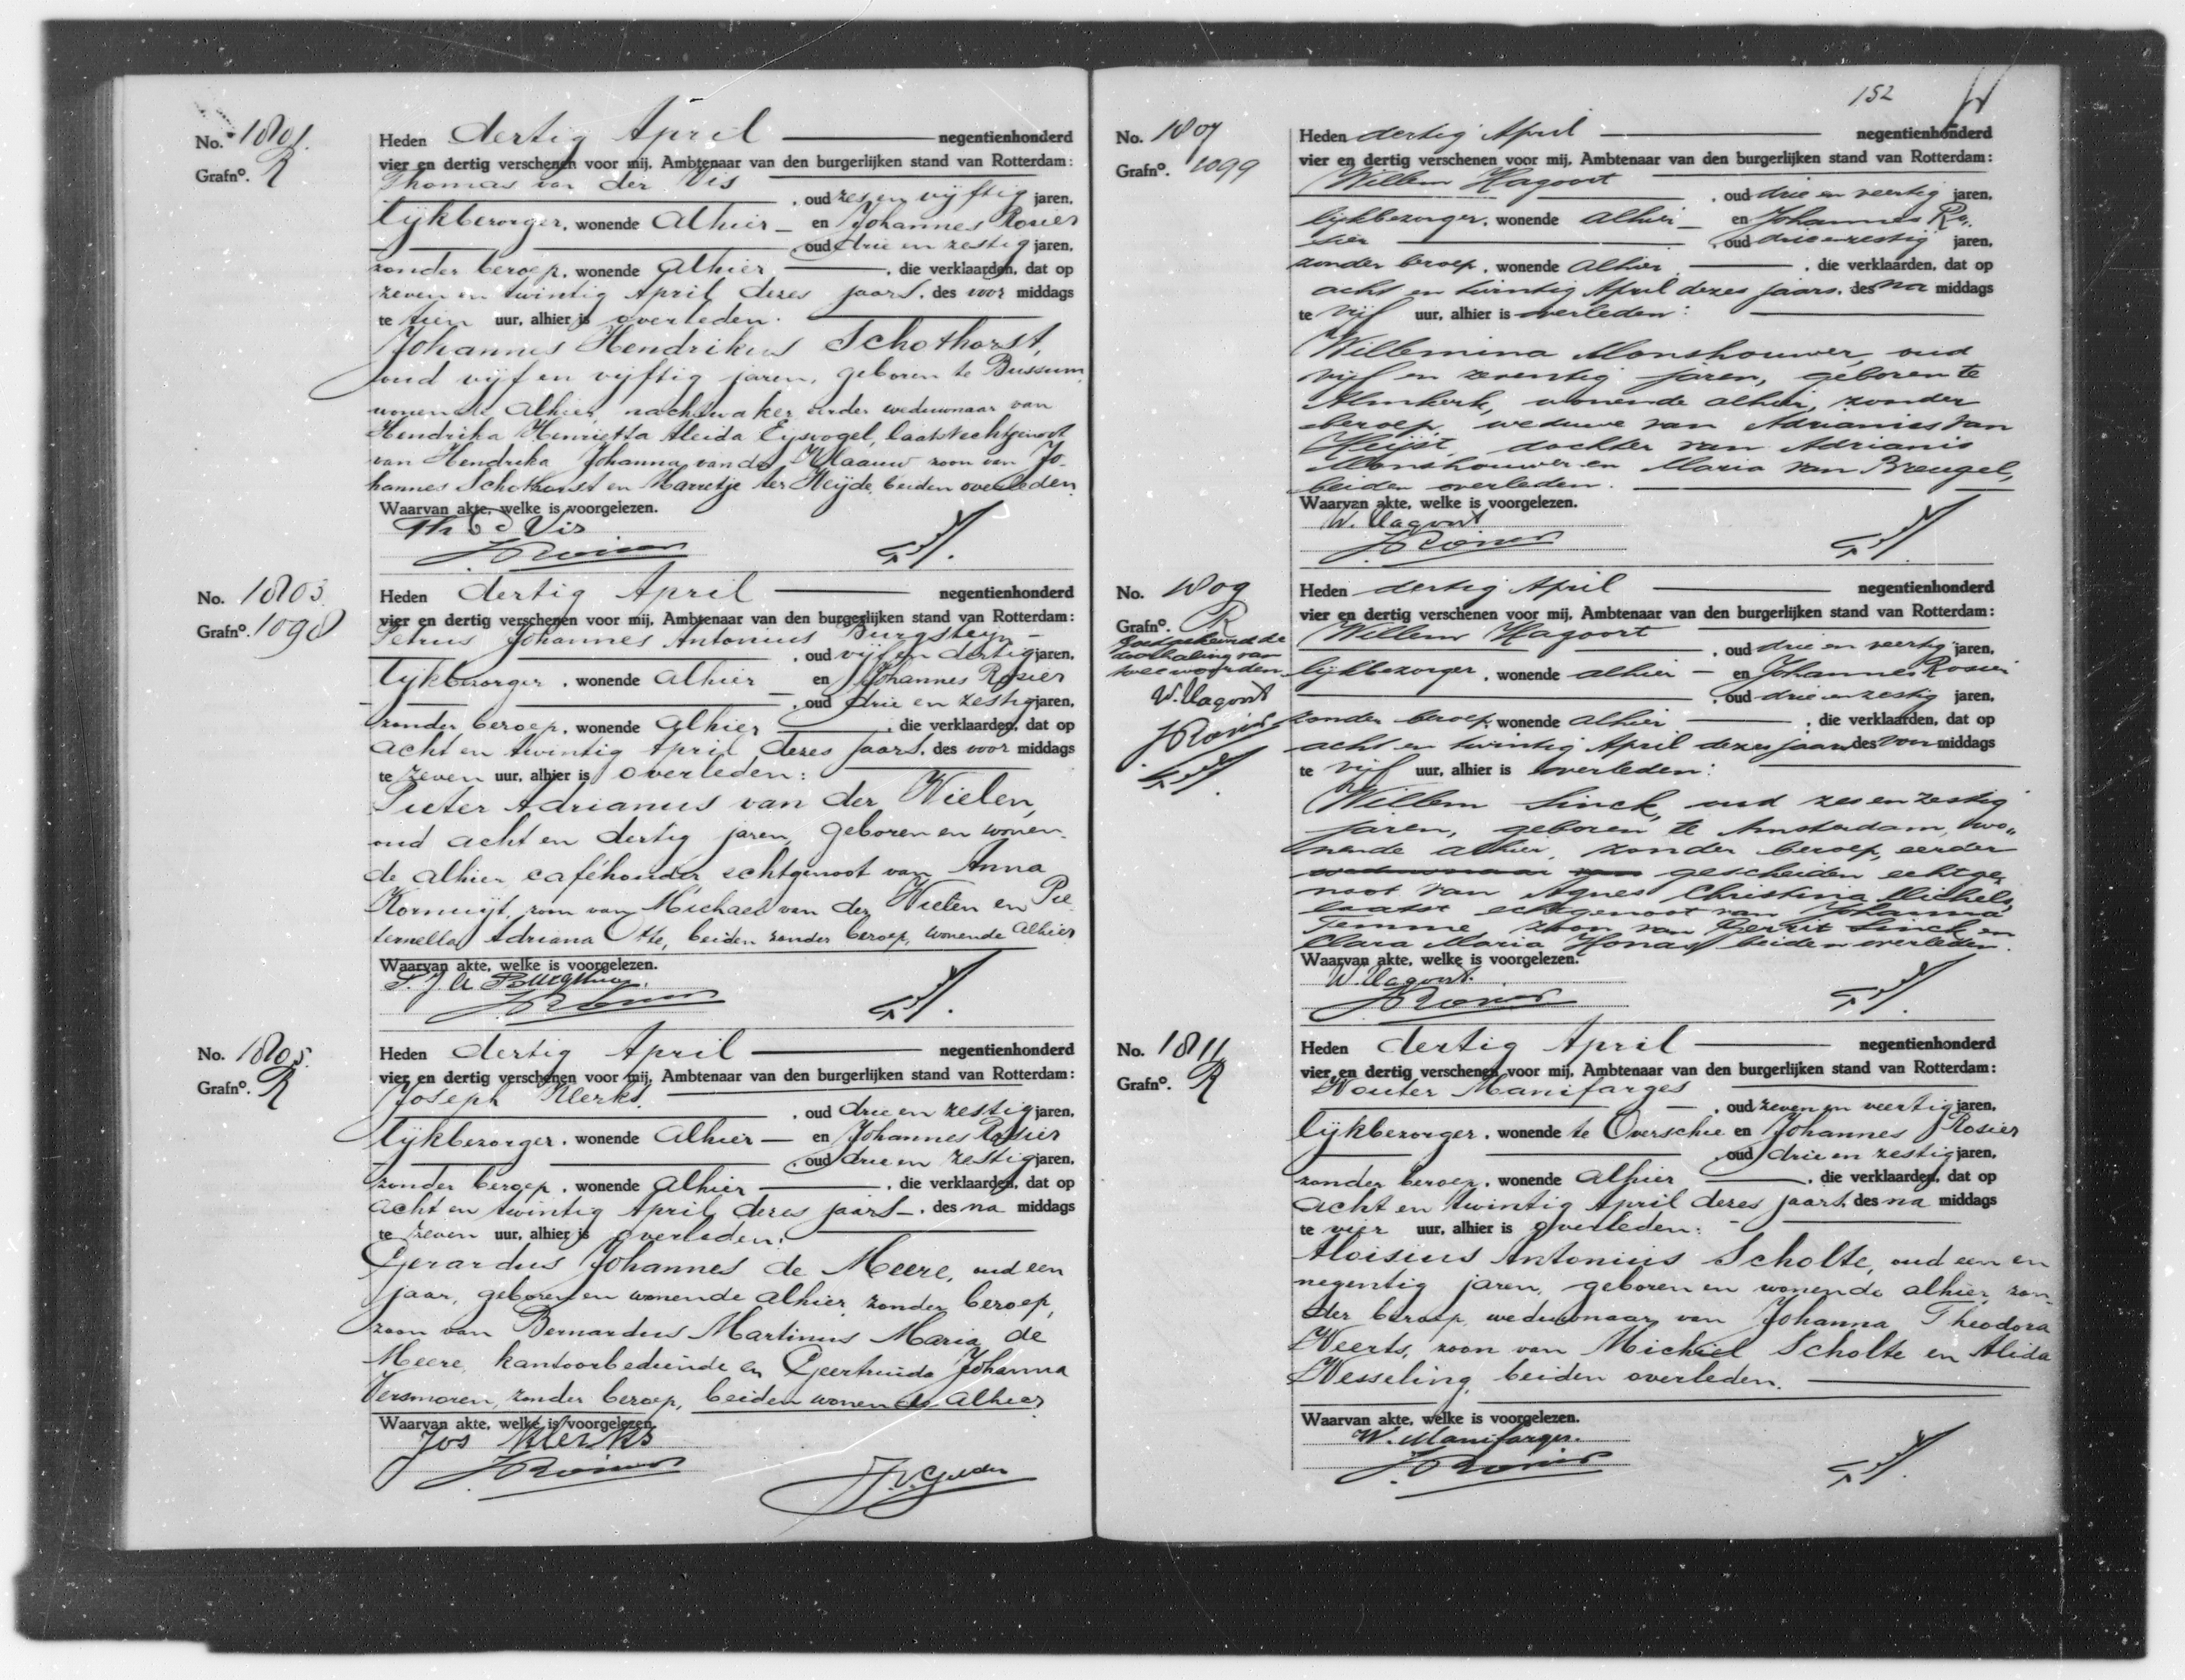 No. 1801.
Grafno. R
Heden dertig April negentienhonderd
vier en dertig verschenen voor mij, Ambtenaar van den burgerlijken stand van Rotterdam:
Thomas van der Vis
, oud zes en vijftig jaren,
lijkbezorger, wonende alhier en Johannes Rosier
, oud drie en zestig jaren,
zonder beroep, wonende alhier, die verklaarden, dat op
zeven en twintig April dezes jaars, des voor middags
te tien uur, alhier is overleden:
Johannes Hendrikus Schothorst,
oud vijf en vijftig jaren, geboren te Bussum,
wonende alhier, nachtwaker eerder weduwnaar van
Hendrika Henrietta Aleida Eijsvogel, laatst echtgenoot
van Hendrika Johanna van der Klaauw zoon van Jo-
hannes Schothorst en Marretje ter Heijde, beiden overleden.
Waarvan akte, welke is voorgelezen.
Th v d Vis
J Rosier
No. 1803.
Grafno. 1098
Heden dertig April negentienhonderd
vier en dertig verschenen voor mij, Ambtenaar van den burgerlijken stand van Rotterdam:
Petrus Johannes Antonius Burgsteyn
, oud vijf en dertig jaren,
lijkbezorger, wonende alhier en Johannes Rosier
, oud drie en zestig jaren,
zonder beroep, wonende alhier, die verklaarden, dat op
acht en twintig April dezes jaars, des voor middags
te zeven uur, alhier is overleden:
Pieter Adrianus van der Wielen,
oud acht en dertig jaren, geboren en wonen-
de alhier caféhouder echtgenoot van Anna
Kornuijt, zoon van Michael van der Wielen en Pie-
ternella Adriana Otte, beiden zonder beroep, wonende alhier
Waarvan akte, welke is voorgelezen.
P. J. A Burgsteyn.
J Rosier
No. 1805.
Grafno. R
Heden dertig April negentienhonderd
vier en dertig verschenen voor mij, Ambtenaar van den burgerlijken stand van Rotterdam:
Joseph Klerks
, oud drie en zestig jaren,
lijkbezorger, wonende alhier en Johannes Rosier
, oud drie en zestig jaren,
zonder beroep, wonende alhier, die verklaarden, dat op
acht en twintig April dezes jaars, des na middags
te zeven uur, alhier is overleden:
Gerardus Johannes de Meere, oud een
jaar, geboren en wonende alhier, zonder beroep,
zoon van Bernardus Martinus Maria de
Meere, kantoorbediende en Geertruida Johanna
Versmoren, zonder beroep, beiden wonende alhier
Waarvan akte, welke is voorgelezen.
Jos Klerks
J Rosier
J.v.Gelder
152
No. 1807
Grafno. 1099
Heden dertig April negentienhonderd
vier en dertig verschenen voor mij, Ambtenaar van den burgerlijken stand van Rotterdam:
Willem Hagoort
, oud drie en veertig jaren,
lijkbezorger, wonende alhier en Johannes Ro-
sier, oud drie en zestig jaren,
zonder beroep, wonende alhier, die verklaarden, dat op
acht en twintig April dezes jaars, des na middags
te vijf uur, alhier is overleden:
Willemina Monshouwer, oud
vijf en zeventig jaren, geboren te
Almkerk, wonende alhier, zonder
beroep, weduwe van Adrianus van
Heijst, dochter van Adrianis
Monshouwer en Maria van Breugel,
beiden overleden.
Waarvan akte, welke is voorgelezen.
W. Hagoort
J Rosier
No. 1809
Grafno. R
Goedgekeurd de
doorhaling van
twee woorden
W. Hagoort
J Rosier
Heden dertig April negentienhonderd
vier en dertig verschenen voor mij, Ambtenaar van den burgerlijken stand van Rotterdam:
Willem Hagoort
, oud drie en veertig jaren,
lijkbezorger, wonende alhier en Johannes Rosier
, oud drie en zestig jaren,
zonder beroep, wonende alhier, die verklaarden, dat op
acht en twintig April dezes jaars des voor middags
te vijf uur, alhier is overleden:
Willem Sinck, oud zes en zestig
jaren, geboren te Amsterdam, wo-
nende alhier, zonder beroep, eerder
weduwnaar van gescheiden echtge-
noot van Agnes Christina Michels,
laatst echtgenoot van Johanna
Temme, zoon van Gerrit Sinck en
Clara Maria Honas, beiden overleden.
Waarvan akte, welke is voorgelezen.
W. Hagoort.
J Rosier
No. 1811
Grafno. R
Heden dertig April negentienhonderd
vier en dertig verschenen voor mij, Ambtenaar van den burgerlijken stand van Rotterdam:
Wouter Manifarges
, oud zeven en veertig jaren,
lijkbezorger, wonende te Overschie en Johannes Rosier
, oud drie en zestig jaren,
zonder beroep, wonende alhier, die verklaarden, dat op
acht en twintig April dezes jaars, des na middags
te vier uur, alhier is overleden:
Aloisius Antonius Scholte, oud een en
negentig jaren, geboren en wonende alhier, zon-
der beroep, weduwnaar van Johanna Theodora
Weerts, zoon van Michiel Scholte en Alida
Wesseling, beiden overleden.
Waarvan akte, welke is voorgelezen.
W. Manifarges.
J Rosier